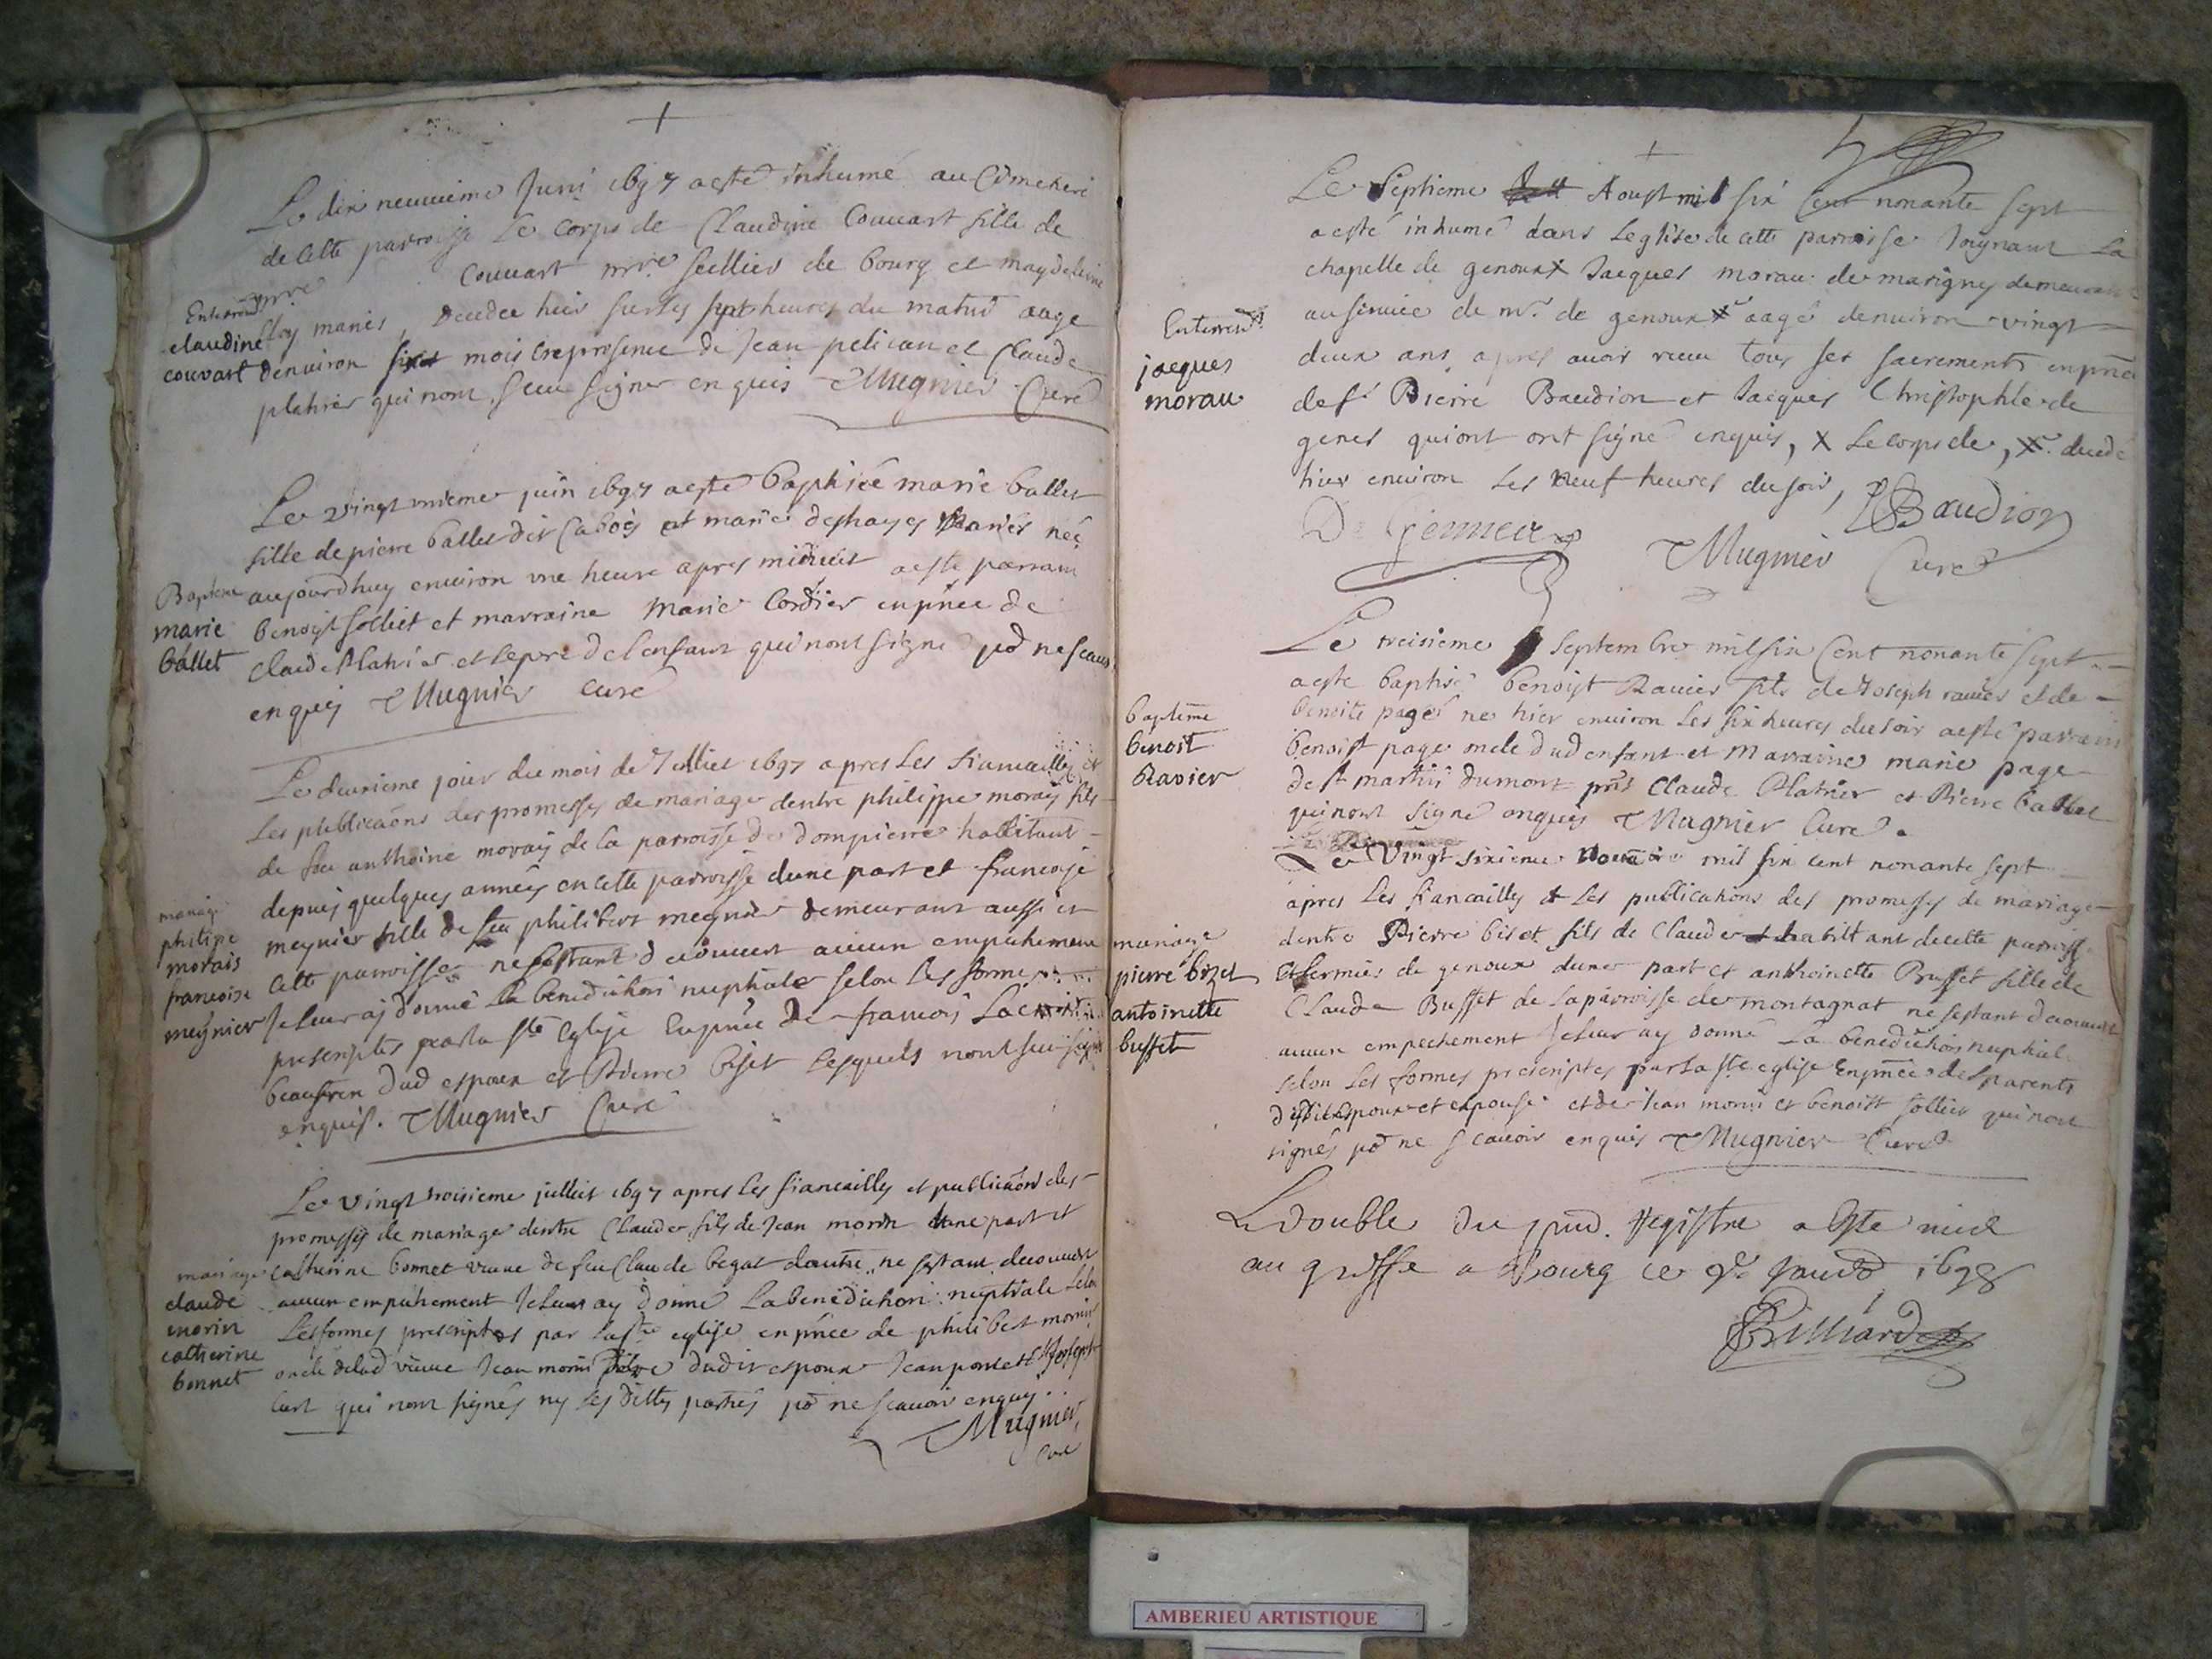 Le dix neuuieme Juin 1697 a esté inhumé au Cimetiere
de cette parroisse Le corps de Claudine Couuart fille de
mre Couuart mre sellier de bourg et magdeleine
loy mariés, decedee hier sur les sept heures du matin aage
denuiron six mois en presence de Jean pelican et Claude
platrier qui nont sceu signer enquis Mugnier Curé
Enterremt
claudine
couvart
Le vingt unieme juin 1697 a esté baptisée marie ballet
fille de pierre ballet dit Cabos et marie deshayes mariés née
aujourdhuy enuiron une heure apres minuit a esté parrain
benoist solliet et marraine marie Cordier en pñce de
claude Platrier et le pere de lenfant qui nont signé po ne scauoir
enquis Mugnier curé
Bapteme
marie
ballet
Le deuxieme jour du mois de Juillet 1697 apres les fiancailles et
les publicaons des promesses de mariage dentre philippe moray fils
de feu anthoine moray de la parroisse de dompierre habitant
depuis quelques années en cette parroisse dune part et francoise
meynier fille de feu philibert meynier demeurant aussi en
cette parroisse ne sestant decouuert aucun empechement
Je leur aj donné la benediction nuptiale selon les formes
prescriptes par la ste Eglise En pñce de francois
beaufrere dud espoux et Pierre biset lesquels nont sceu signer
enquis. Mugnier Curé
mariage
philipe
morais
francoise
meynier
Le vingt troisieme juillet 1697 apres les fiancailles et publicaons des
promesses de mariage dentre Claude fils de Jean morin dune part et
catherine bonnet vieuue de feu Claude begat dautre, ne sestant decouuert
aucun empechement Je leur ay donné La benediction nuptiale selon
Les formes prescriptes par la ste eglise en pñce de philibert morin
oncle de lad vieuue Jean morin pere dudit espoux Jean poncet et Joseph
curt qui nont signés ny les dittes parties po ne scauoir enquis
Mugnier
curé
mariage
claude
morin
catherine
bonnet
Le Septieme Aoust mil six cent nonante sept
a esté inhumé dans Leglise de cette parroisse Joignant La
chapelle de genoux x Jacques morau de marigny demeurant
au seruice de mr. de genoux x aagé denuiron vingt
deux ans apres auoir receu tous ses sacrements en pñce
de sr Pierre Baudion et Jacques Christophle de
genes qui ont ont signé enquis, x Le corps de, x decede
hier enuiron Les neuf heures du soir,
Baudion
Mugnier Curé
Enterremt
jacques
morau
Le treisieme septembre mil six Cent nonante sept
a esté baptisé benoist Rauier fils de Joseph rauier et de
benoite page né hier enuiron Les six heures du soir a esté parrain
benoist page oncle dud enfant et Marraine marie page
de st martin dumont pnts Claude Platrier et Pierre ballet
qui nont signé enquis Mugnier Curé.
bapteme
benoit
Ravier
Le Vingt sixieme mil six cent nonante sept
apres Les fiancailles et Les publications des promesses de mariage
dentre Pierre biset fils de Claude habittant de cette parroisse
et fermier de genoux dune part et anthoinette Buffet fille de
Claude Buffet de la parroisse de montagnat ne sestant decouuert
aucun empechement Je leur ay donné La benediction nuptiale
selon Les formes prescriptes par la ste eglise En pñce des parents
desdits espoux et espouse et de Jean morin et benoist sollier qui nont
signés po ne scauoir enquis Mugnier Curé
mariage
pierre bizet
antoinette
buffet
Le double du pnt. Registre a este mis
au greffe a Bourg ce 9e Januier 1698
Brilliard
AMBERIEU ARTISTIQUE